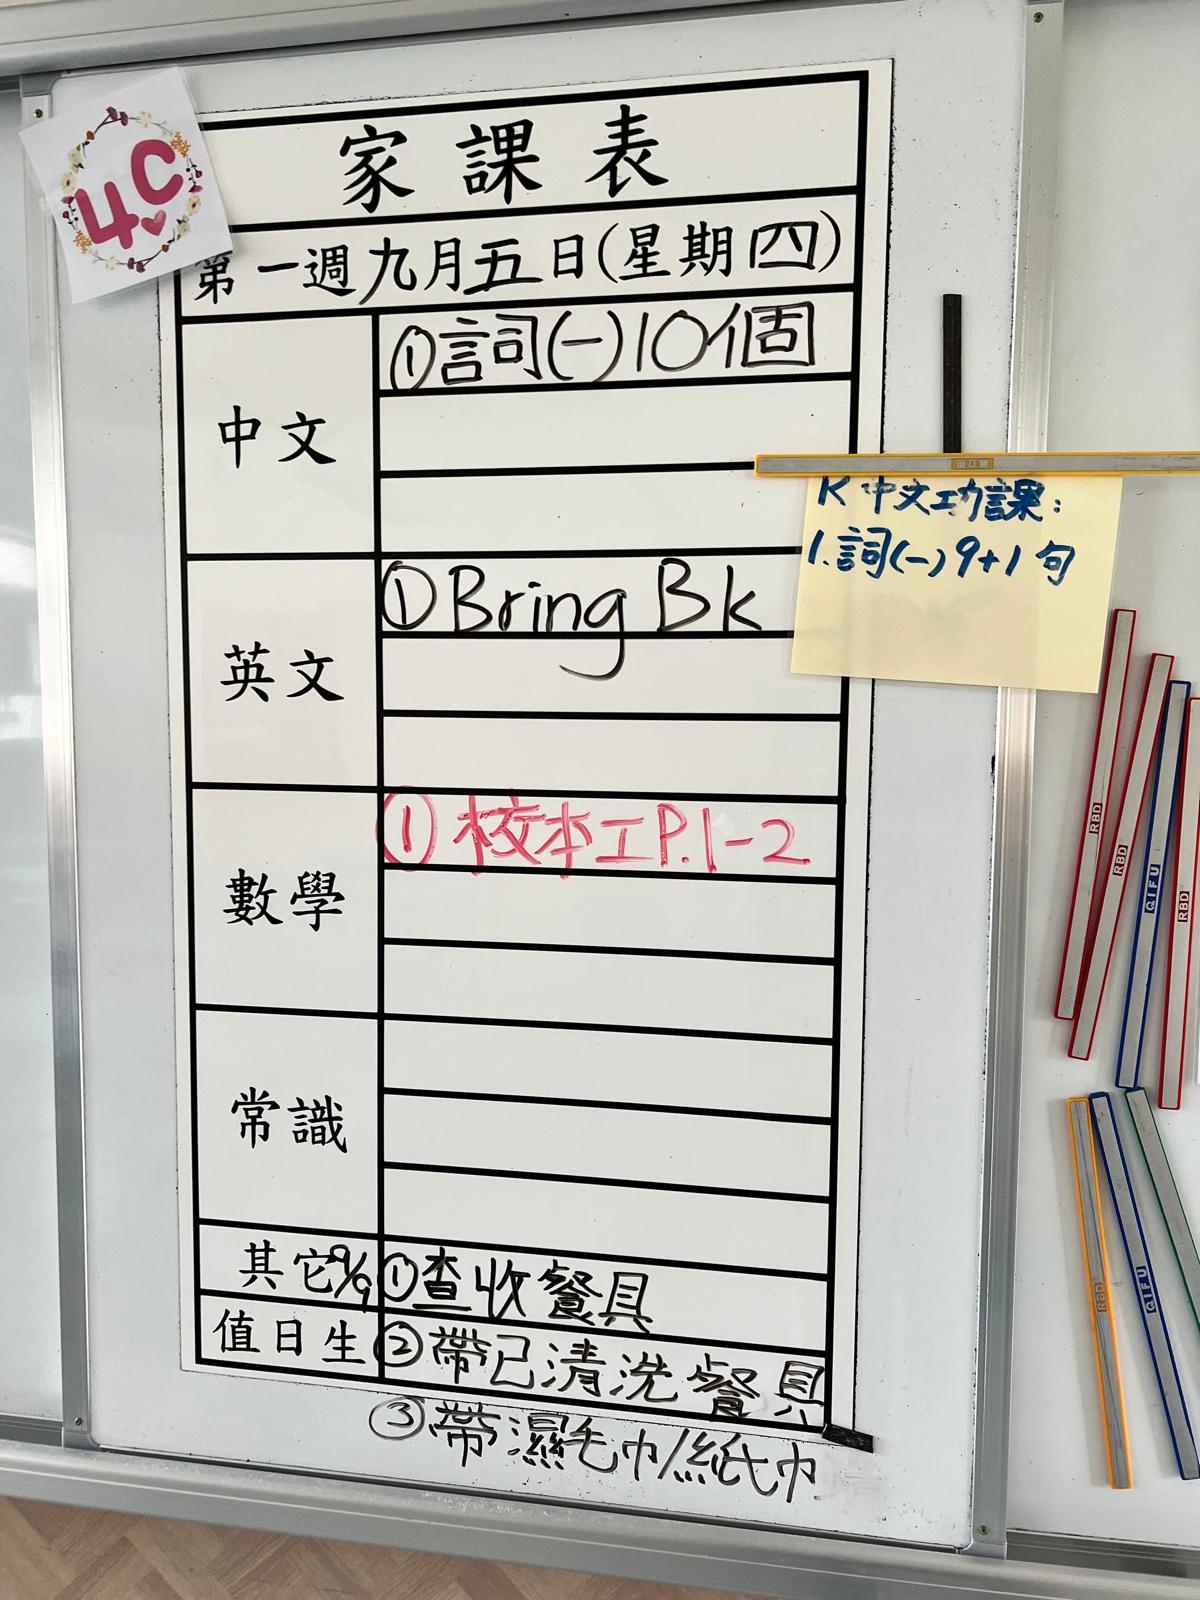 4C
家課表
第一週九月五日(星期四)
中文
①詞(一)10個
K 中文功課:
1.詞(一)9+1句
英文
①Bring Bk
數學
①校本工P.1-2
常識
其它 9/9 ①查收餐具
值日生 ②帶已清洗餐具
③帶濕毛巾/紙巾
RBD
RBD
QIFU
RBD
RBD
QIFU